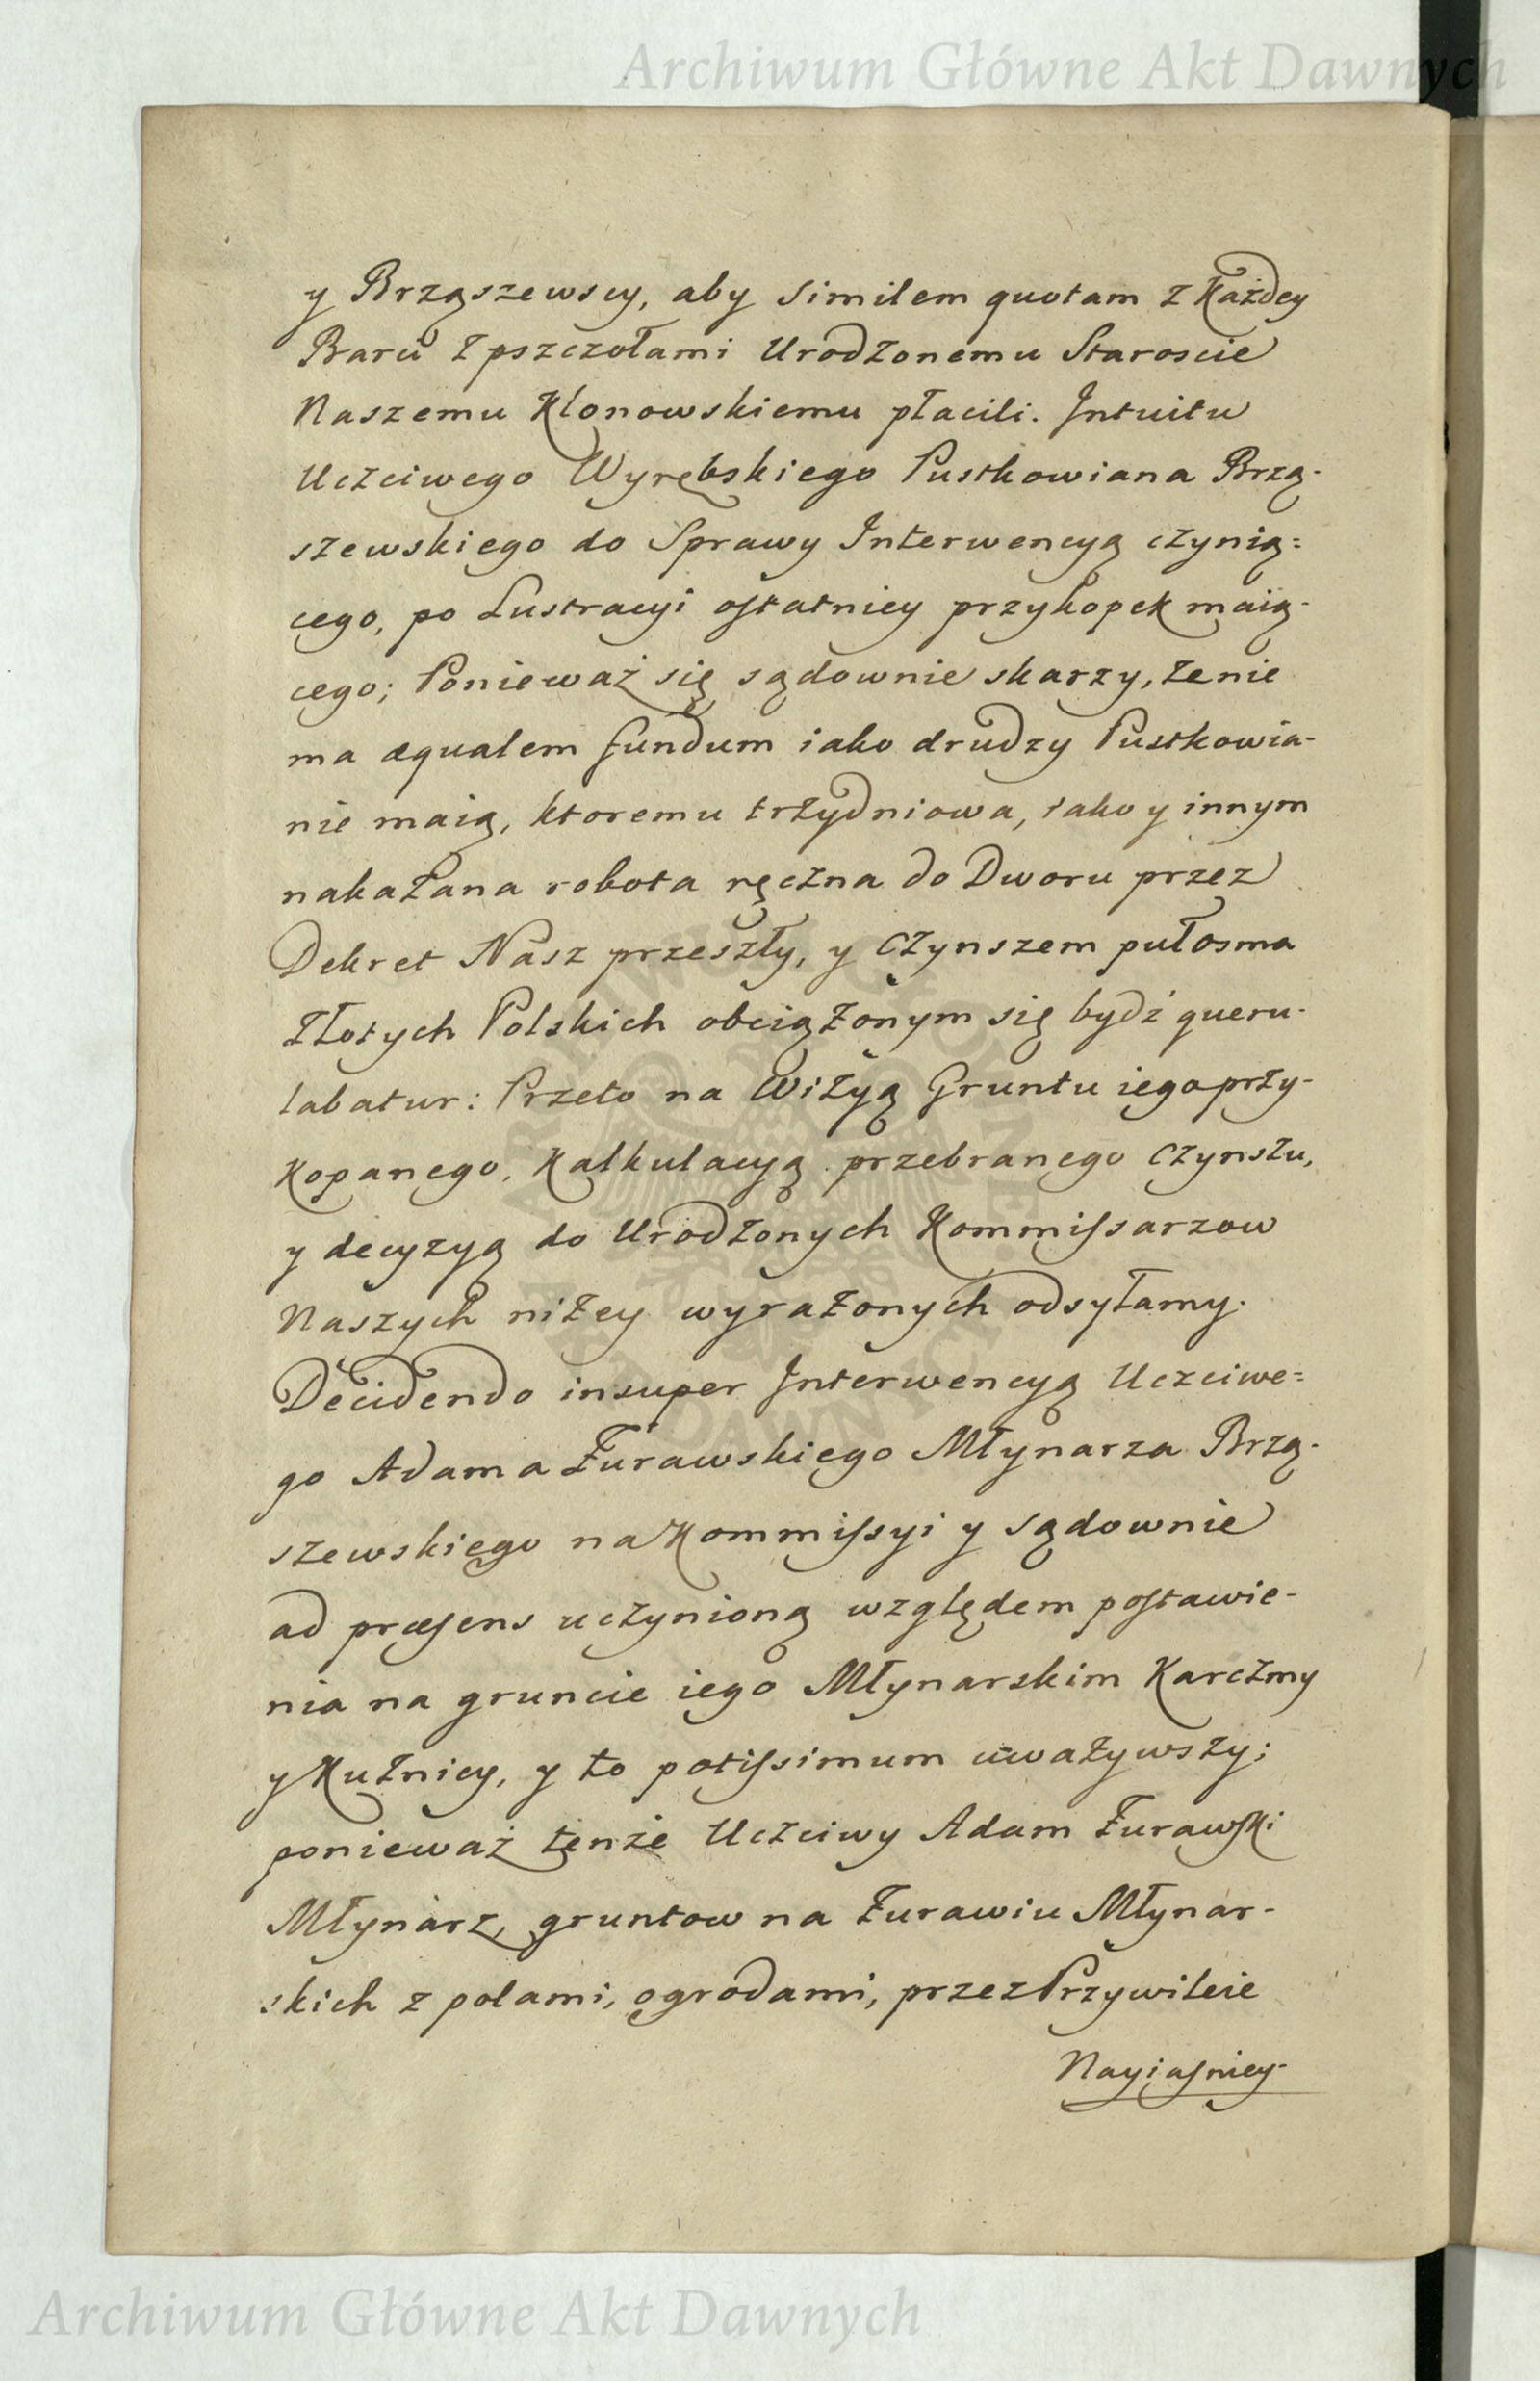 Archiwum Główne Akt Dawnych
y Brząszewscy, aby Similem quotam z Każdey
Barci z pszczołami Urodzonemu Staroscie
Naszemu Klonowskiemu płacili. Intuitu
Uczciwego Wyrębskiego Pustkowiana Brzą-
szewskiego do Sprawy Interwencyą czynią=
cego, po Lustracyi ostatniey przykopek maią-
cego; Ponieważ się sądownie skarzy, że nie
ma æqualem fundum iako drudzy Pustkowia-
nie maią, ktoremu trzydniowa, iako y innym
nakazana robota ręczna do Dworu przez
Dekret Nasz przeszły, y Czynszem pułosma
Złotych Polskich obciążonym się bydź queru-
labatur: Przeto na Wizyą Gruntu iego przy-
kopanego, Kalkulacyą przebranego Czynszu,
y decyzyą do Urodzonych Kommissarzow
Naszych niżey wyrażonych odsyłamy.
Decidendo insuper Interwencyą Uczciwe=
go Adama Żurawskiego Młynarza Brzą-
szewskiego na Kommissyi y sądownie
ad præsens uczynioną względem postawie-
nia na gruncie iego Młynarskim Karczmy
y Kuźnicy, y to potissimum uważywszy;
ponieważ tenże Uczciwy Adam Żurawski
Młynarz, gruntow na Żurawiu Młynar-
skich z polami, ogrodami, przez Przywileie
Nayiasniey-
Archiwum Główne Akt Dawnych